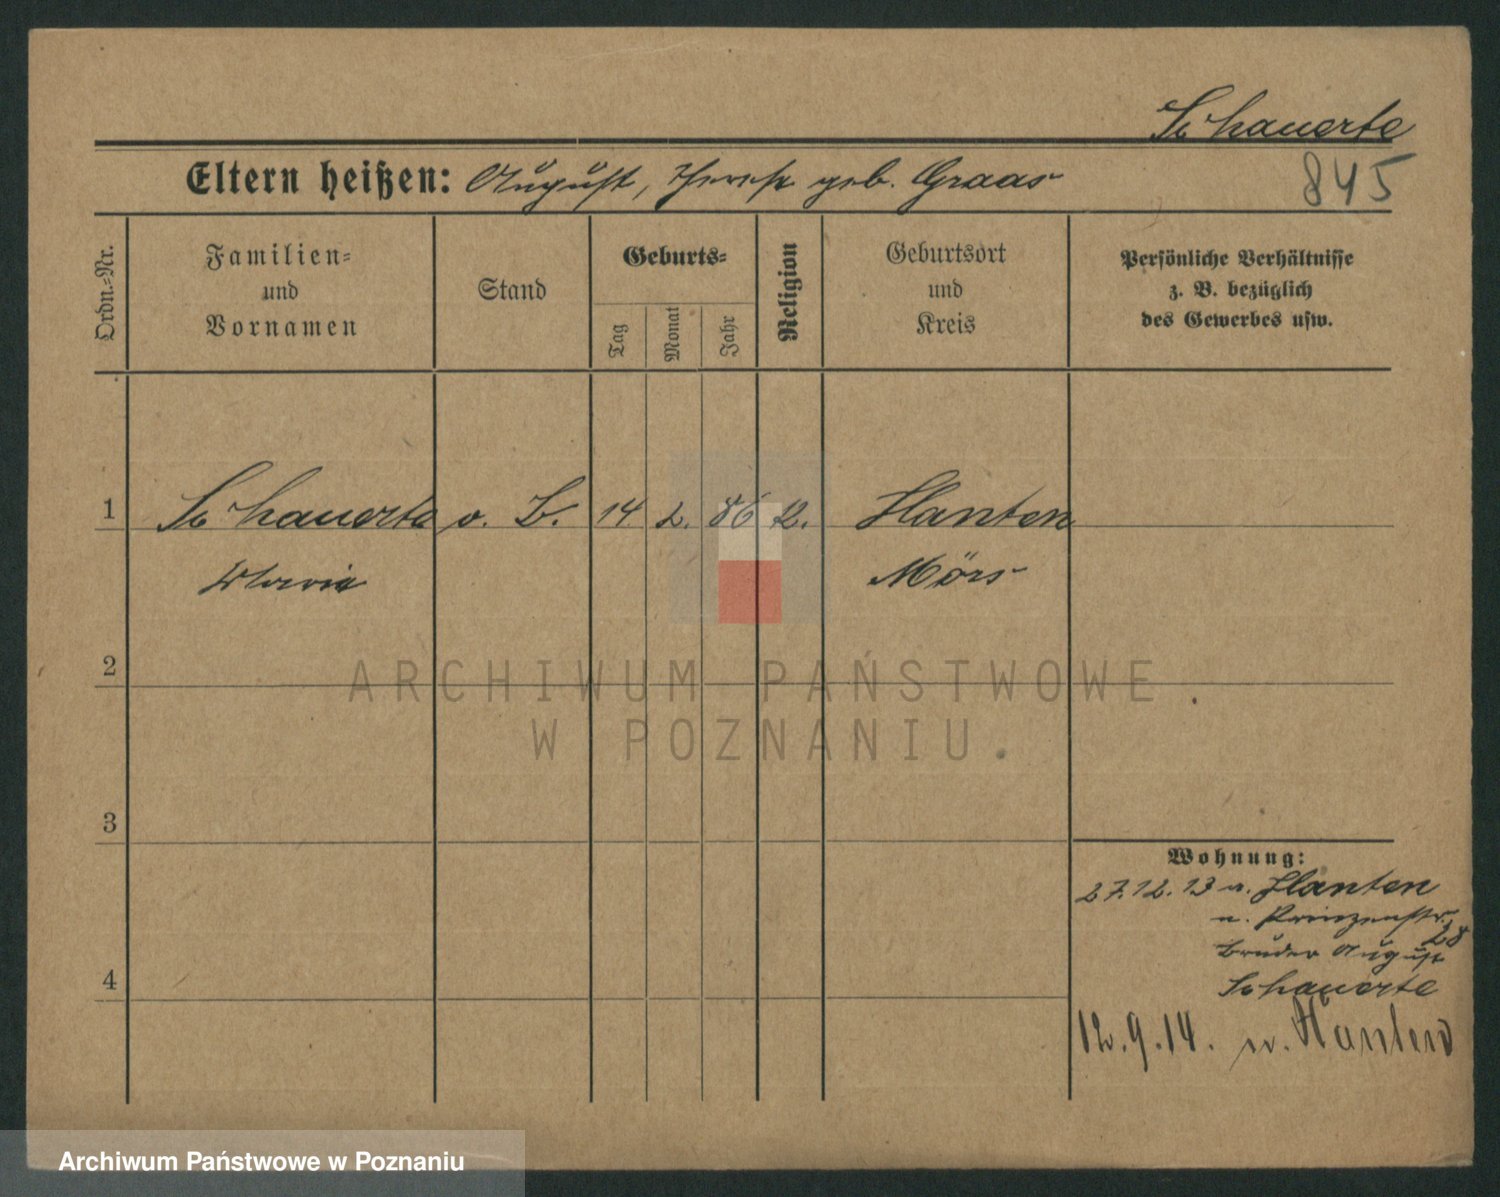 Schauerte
845
Eltern heißen: August, Therese geb. Graas
Ordn.-Nr.
Familien-
und
Vornamen
Stand
Geburts-
Tag
Monat
Jahr
Religion
Geburtsort
und
Kreis
Persönliche Verhältnisse
z. B. bezüglich
des Gewerbes usw.
1 Schauerte o. B. 14 2. 86 Xanten
Maria Mörs
2
ARCHIWUM PAŃSTWOWE
W POZNANIU.
3
Wohnung:
27.12.13 v. Xanten
n. Prinzenstr. 28
Bruder August
Schauerte
4
12.9.14. n. Xanten
Archiwum Państwowe w Poznaniu